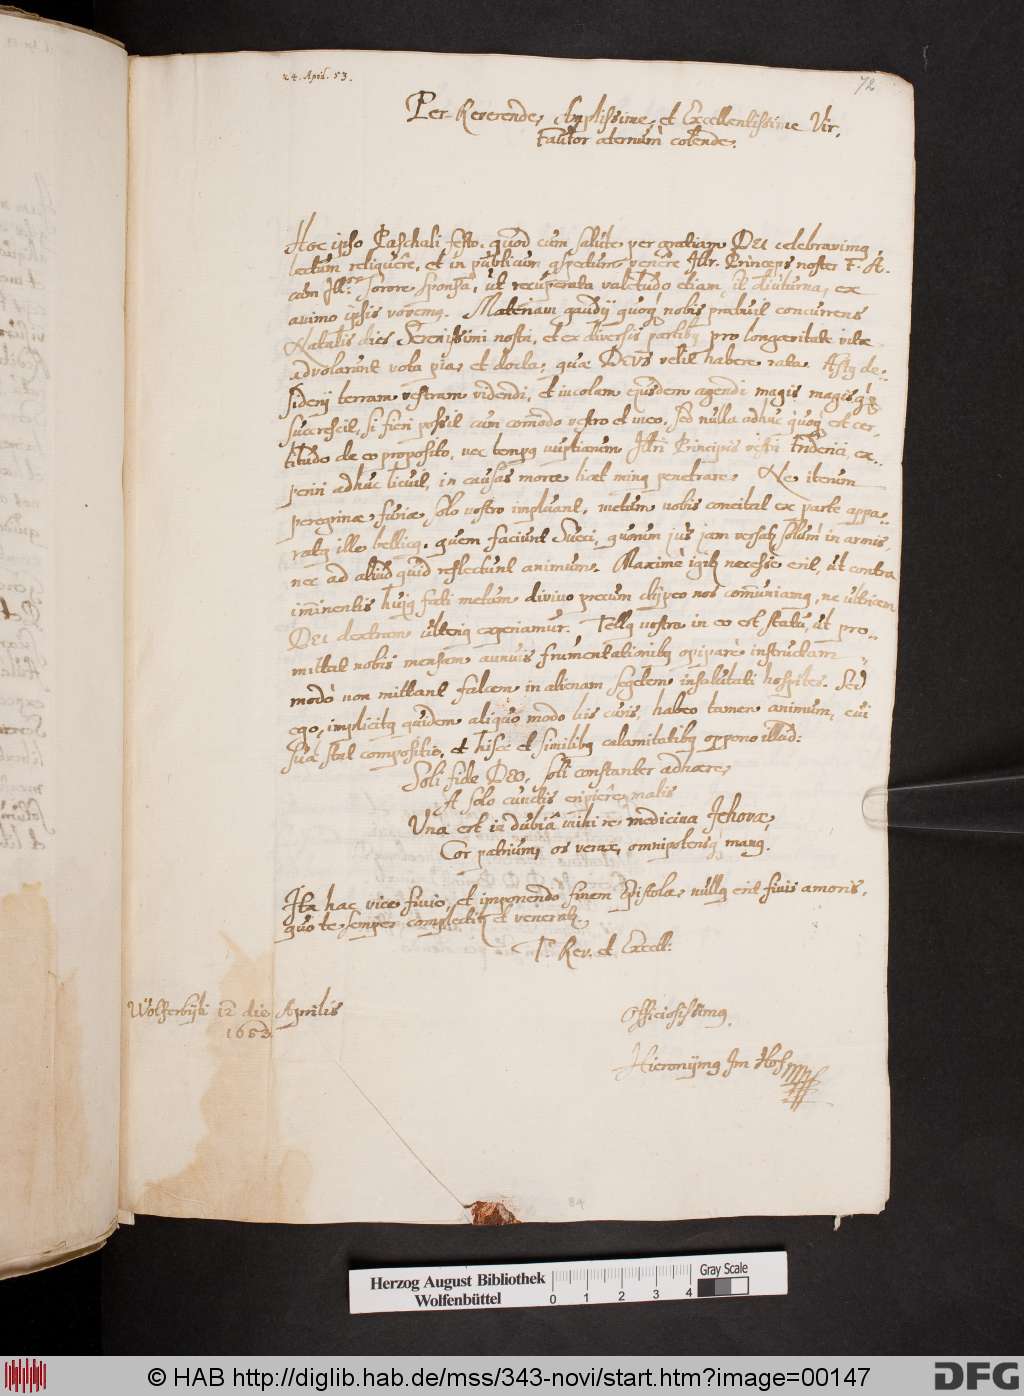 24. April. 53.
72
Per Reverende, Amplissime, et Excellentissime Vir,
Fautor æternùm colende.
Hoc ipso Paschali festo, quod cum salute per gratiam DEI celebravimq,
lectum reliquêre, et in publicum conspectum venêre Illr. Princeps noster F. A.
cum Ill.ma sorore sponsa, ut recuperata valetudo etiam sit diuturna, ex
animo ipsis vovemq. Materiam gaudij quoq nobis præbuit concurrens
Natalis dies Serenissimi nostri, et ex diversis partibq pro longævitate vitæ
advolarunt vota pia, et docta, quæ DEUS velit habere rata. Æstq de-
siderij terram vestram videndi, et incolam ejusdem agendi magis magisq
succrescit, si fieri possit cum comodo vestro et meo, sed nulla adhuc quoq est cer-
titudo de eo proposito, nec tempq nuptiarum Illri Principis vestri Friderici, ex-
periri adhuc licuit, in causas moræ licet minq penetrare. Ne iterum
peregrinæ furiæ solo nostro impluant, metum nobis concitat ex parte appa-
ratq ille bellicq, quem faciunt Sueci, quorum jus jam versatr solùm in armis,
nec ad aliud quid reflectunt animum. Maximè igitr necesse erit, ut contra
imminentis hujq fati metum divino precum clypeo nos comuniamq, ne ultricem
DEI dextram ulteriq experiamur. Tellq nostra in eo est statu, ut pro-
mittat nobis mensem annuis frumentationibq opiparè instructam
modò non mittant falcem in alienam segetem insalutati hospites. Sed
ego, implicitq quidem aliquo modo his curis, habeo tamen animum, cui
sua stat compositio, et hisce et similibq calamitatibq oppono illud:
Soli fide DEO, soli constanter adhære,
A solo cunctis eripiêre malis
Una est in dubiâ mihi re medicina Jehovæ,
Cor patrium, os verax, omnipotensq manq.
Ita hac vice finio, et imponendo finem Epistolæ, nullq erit finis amoris,
quo te semper complectitr et veneratr.
T. Rev. et Excell:
Wolferbyti 12 die Aprilis
1653.
Officiosissimq.
Hieronymq Im Hof
84
Herzog August Bibliothek
Wolfenbüttel
0 1 2 3 4
Gray Scale
© HAB http://diglib.hab.de/mss/343-novi/start.htm?image=00147
DFG